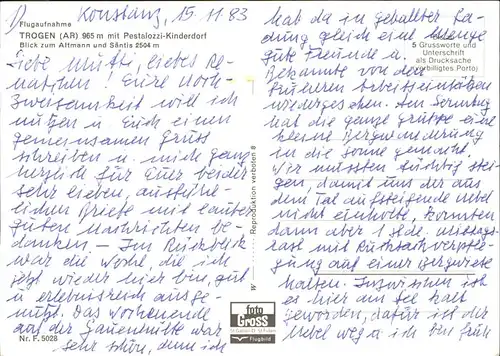 1) Konstanz, 15. 11. 83
Flugaufnahme
TROGEN (AR) 965 m mit Pestalozzi-Kinderdorf
Blick zum Altmann und Säntis 2504 m
Liebe Mutti, liebes Re-
natchen! Eure Noch-
zweisamkeit will ich
nutzen u. Euch einen
gemeinsamen Gruss
schreiben u. mich ganz
herzlich für Euer beider
sehr lieben, ausführ-
lichen Briefe mit lauter
guten Nachrichten be-
danken – Im Rückblick
war die Woche, die ich
jetzt wieder hier bin, gut
u. erlebnisreich ausge-
nutzt. Das Wochenende
auf der Hütte war
sehr schön, denn ich
Nr. F. 5028
W Reproduktion verboten 8
foto
Gross
St. Gallen
Flugbild
5 Grussworte und
Unterschrift
als Drucksache
(verbilligtes Porto)
hat da in geballter La-
dung gleich eine Menge
gute Freunde u.
Bekannte von den
früheren Arbeitseinsätzen
wiedergesehen. Am Sonntag
hat die ganze Gruppe eine
kleine Bergwanderung
in die Sonne gemacht.
Wir mussten tüchtig stei-
gen, damit uns der aus
dem Tal aufsteigende Nebel
nicht einholte, konnten
dann aber 1 Std. Mittags-
rast mit Rucksackverpfle-
gung auf einer Bergwiese
halten. Inzwischen ist
es hier am See kalt
geworden, dafür ist der
Nebel weg u. ich